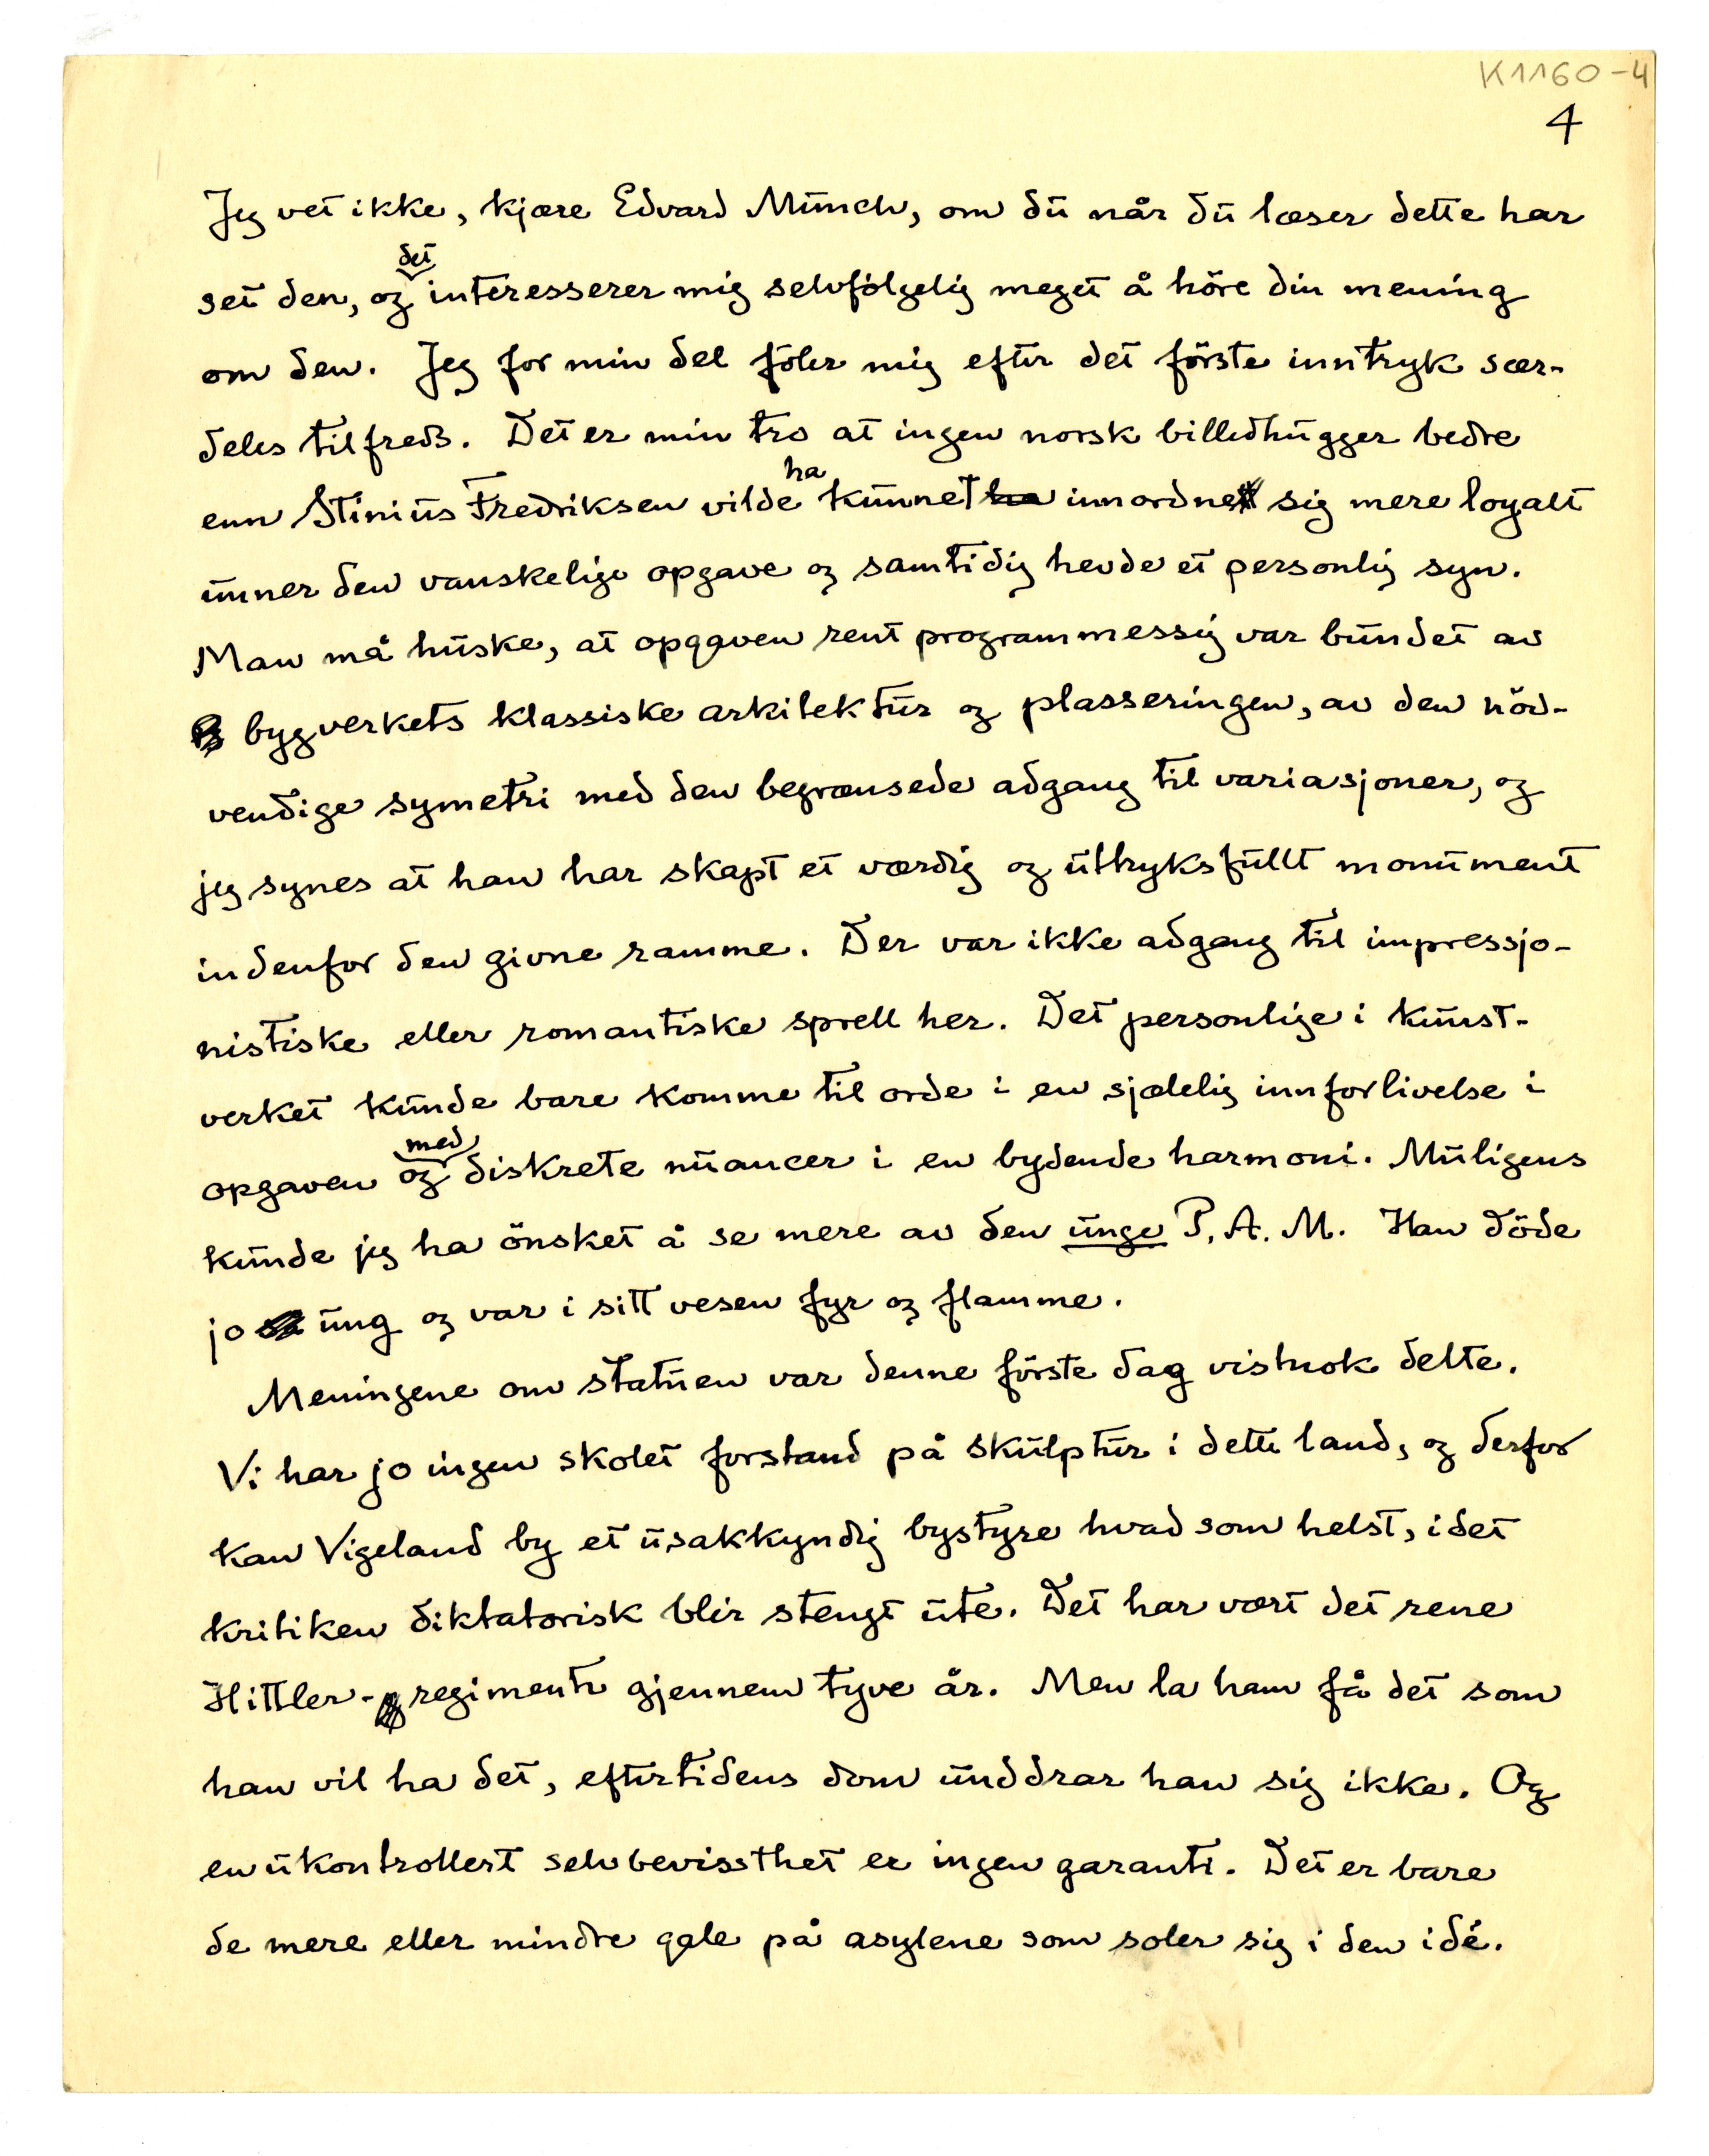 K1160-4
4
Jeg vet ikke, kjære Edvard Munch, om du når du læser dette har
set den, og det interesserer mig selvfölgelig meget å höre din mening
om den. Jeg for min del föler mig efter det förste inntryk sær-
deles tilfreds. Det er min tro at ingen norsk billedhugger bedre
enn Stinius Fredriksen vilde ha kunnet ha innordne sig mere loyalt
unner den vanskelige opgave og samtidig hevde et personlig syn.
Man må huske, at opgaven rent programmessig var bundet av
bygverkets klassiske arkitektur og plasseringen, av den nöd-
vendige symetri med den begrænsede adgang til variasjoner, og
jeg synes at han har skapt et værdig og uttryksfullt monument
indenfor den givne ramme. Der var ikke adgang til impressjo-
nistiske eller romantiske sprell her. Det personlige i kunst-
verket kunde bare komme til orde i en sjælelig innforlivelse i
opgaven og med diskrete nuancer i en bydende harmoni. Muligens
kunde jeg ha önsket å se mere av den unge P. A. M. Han döde
jo ung og var i sitt vesen fyr og flamme.
Meningene om statuen var denne förste dag vistnok delte.
Vi har jo ingen skolet forstand på skulptur i dette land, og derfor
kan Vigeland by et usakkyndig bystyre hvad som helst, idet
kritiken diktatorisk blir stengt ute. Det har vært det rene
Hittler-regimente gjennem tyve år. Men la ham få det som
han vil ha det, eftertidens dom unddrar han sig ikke. Og
en ukontrollert selvbevissthet er ingen garanti. Det er bare
de mere eller mindre gale på asylene som soler sig i den idé.